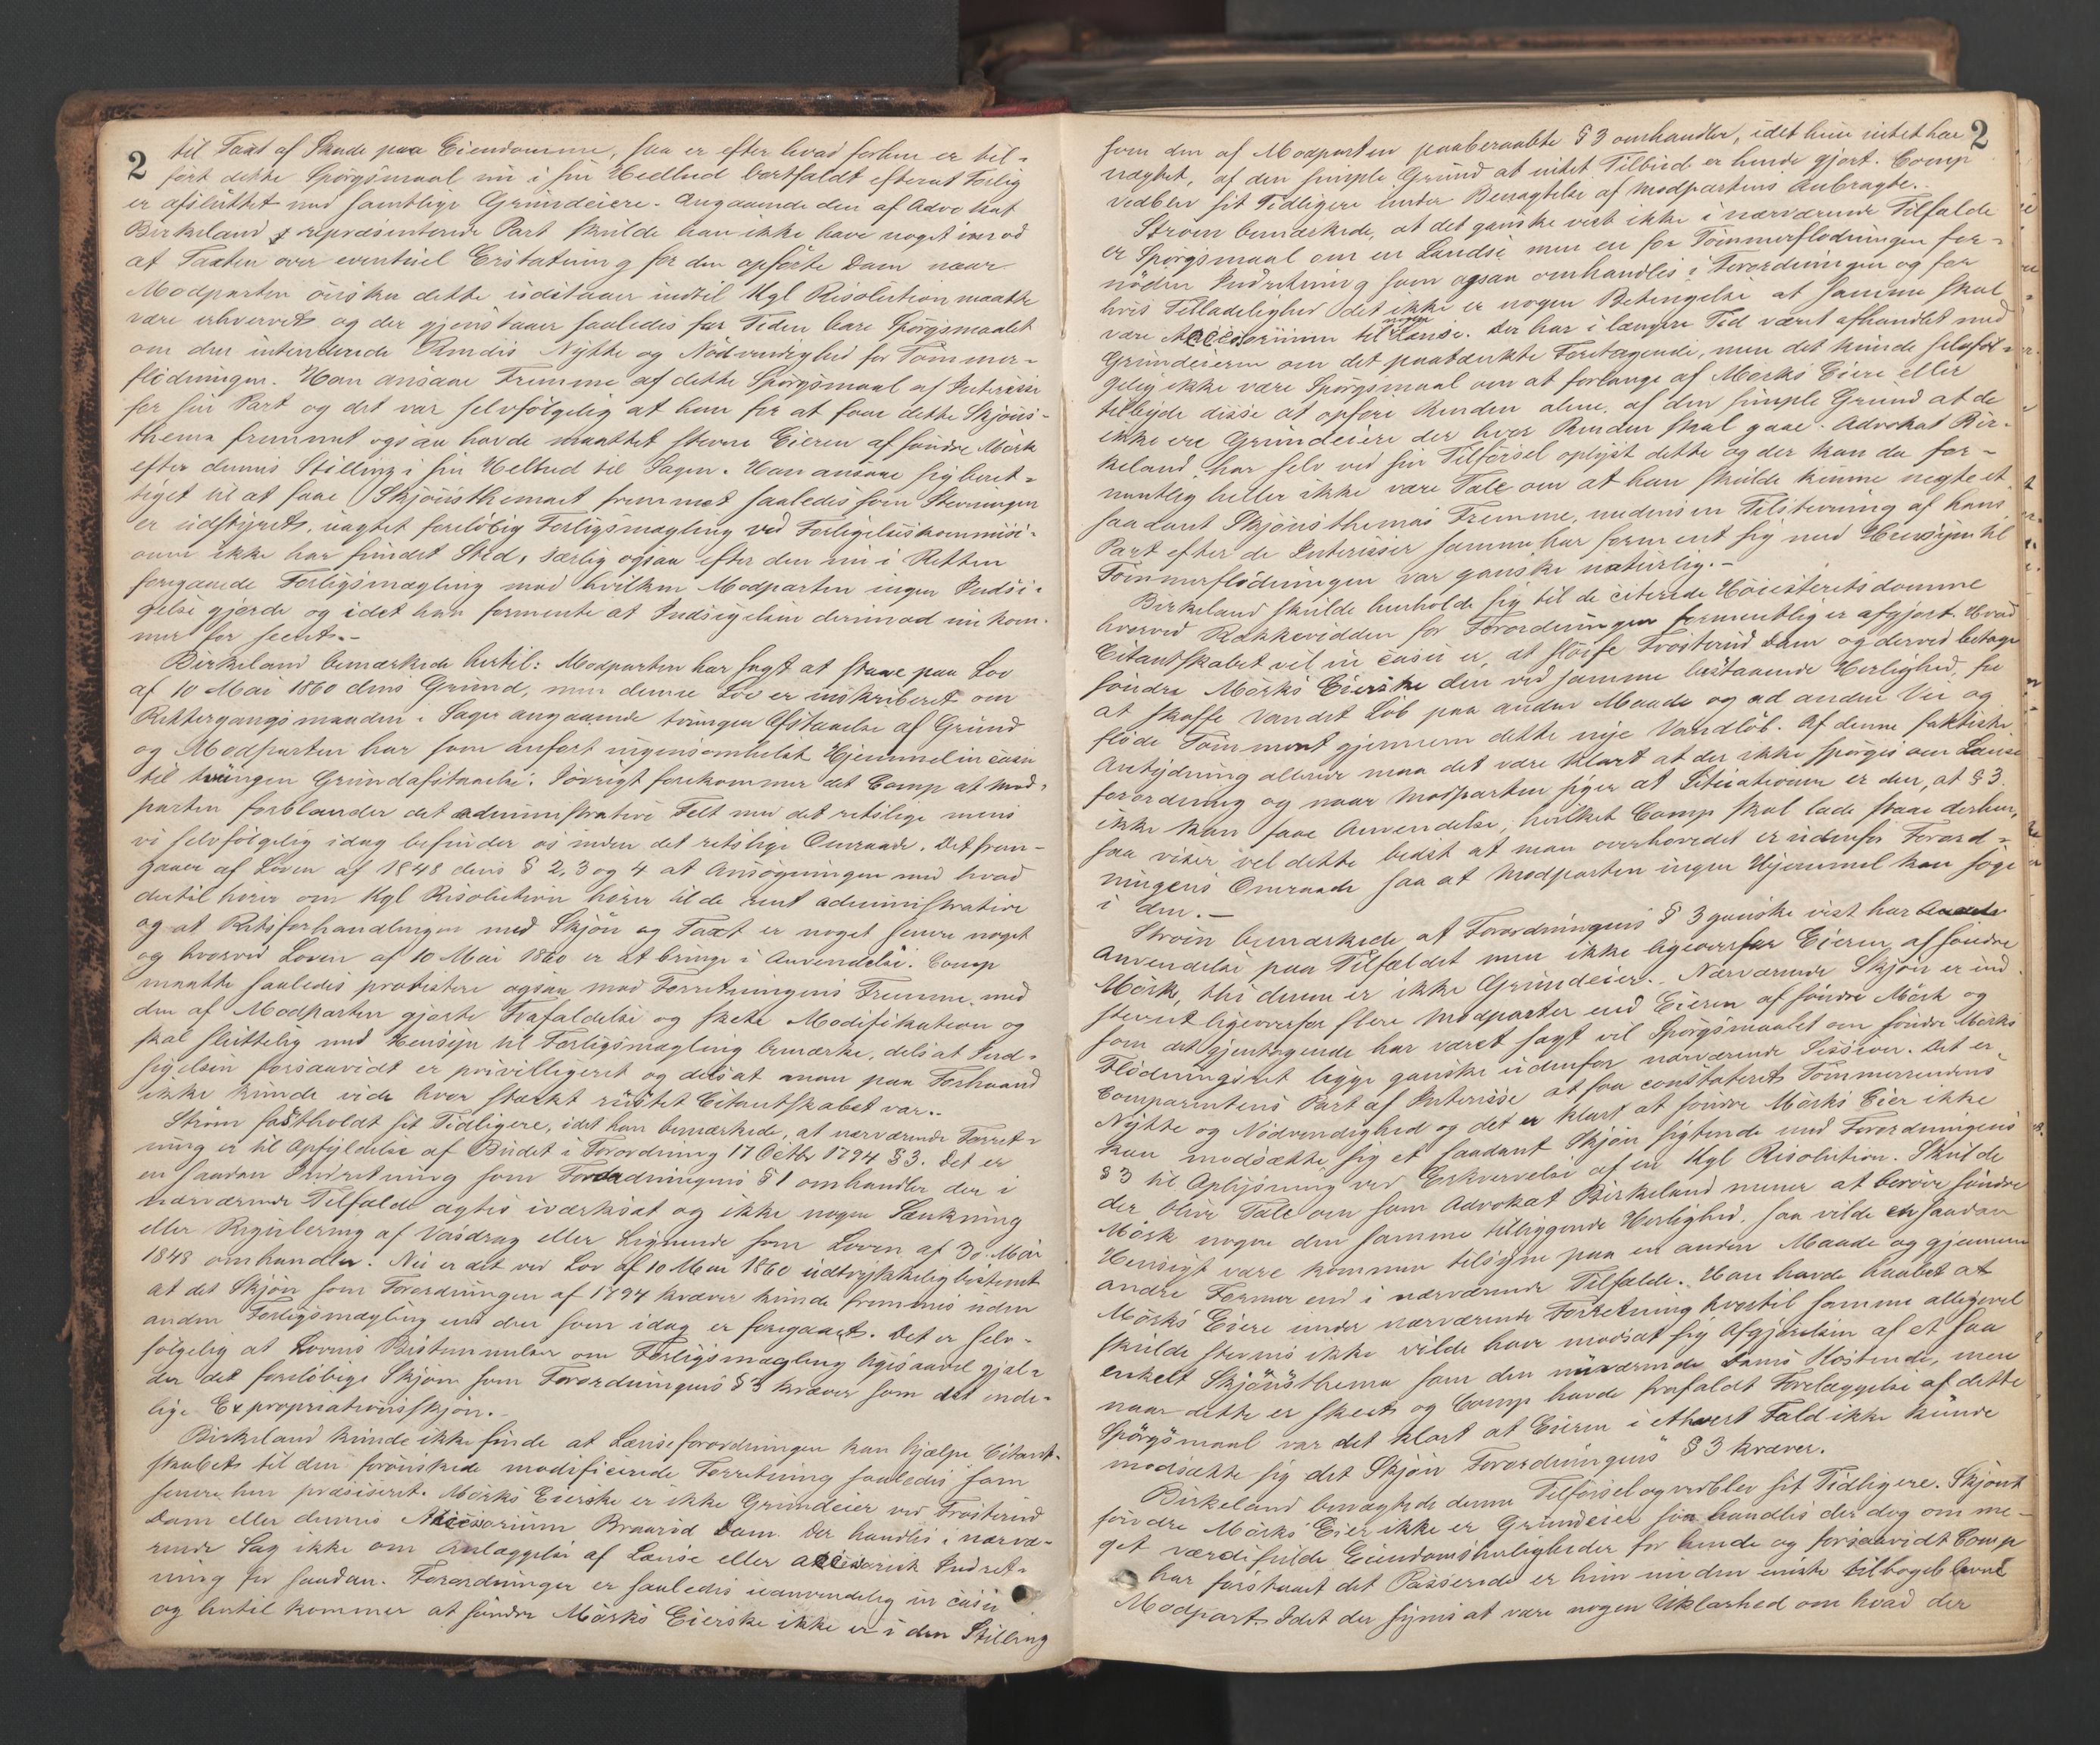 2
til Taxt af Skade paa Eiendomme, saa er efter hvad forhen er til-
ført dette Spørgsmaal nu i sin Helhed bortfaldt efterat Forlig
er afsluttet med samtlige Grundeiere. Angaaende den af Advokat
Birkeland repræsenterede Part skulde han ikke have noget imod
at Taxten over eventuel Erstatning for den opførte Dam naar
Modparten ønsker dette udstaaer indtil Kgl Resolution maatte
være erhvervet og der gjenstaaer saaledes for Tiden bare Spørgsmaalet
om den intenderede Rendes Nytte og Nødvendighed for Tømmer-
flødningen. Han ansaae Fremme af dette Spørgsmaal af Interesse
for sin Part og det var selvfølgelig at han for at faae dette Skjøns-
thema fremmet ogsaa havde maattet stevne Eieren af søndre Mørk
efter dennes Stilling i sin Helhed til Sagen. Han ansaae sig beret-
tiget til at faae Skjønsthemaet fremmet saaledes som Stevningen
er udstyret, uagtet foreløbig Forligsmægling ved Forligelseskommissi-
onen ikke har fundet Sted, særlig ogsaa efter den nu i Retten
foregaaede Forligsmægling mod hvilken Modparten ingen Indsi-
gelse gjorde og idet han formente at Indsigelsen derimod nu kom-
mer for seent.-
Birkeland bemærkede hertil: Modparten har søgt at staae paa Lov
af 10 Mai 1860 dens Grund, men denne Lov er inskriberet om
Rettergangsmaaden i Sager angaaende tvungen Afstaaelse af Grund
og Modparten har som anført ingensomhelst Hjemmel in casu
til tvungen Grundafstaaelse. Iøvrigt forekommer det Comp at Mod-
parten forblander det administrative Felt med det retslige mens
vi selvfølgelig idag befinder os inden det retslige Omraade. Det frem-
gaaer af Loven af 1848 dens § 2, 3 og 4 at Ansøgningen med hvad
dertil hører om Kgl Resolution hører til de rent administrative
og at Retsforhandlingen med Skjøn og Taxt er noget senere noget
og hvorved Loven af 10 Mai 1860 er at bringe i Anvendelse. Comp
maatte saaledes protestere ogsaa mod Forretningens Fremme med
den af Modparten gjorte Frafaldelse og skete Modifikation og
skal sluttelig med Hensyn til Forligsmægling bemærke, dels at Ind-
sigelsen forsaavidt er privilligeret og dels at man paa Forhaand
ikke kunde vide hvor stærkt rustet Citantskabet var.-
Strøm fastholdt sit Tidligere, idet han bemærkede, at nærværende Forret-
ning er til Opfyldelse af Budet i Forordning 17 Octbr 1794 § 3. Det er
en saadan Indretning som Forordningens § 1 omhandler der i
nærværende Tilfælde agtes iværksat og ikke nogen Sænkning
eller Regulering af Vasdrag eller Lignende som Loven af 30. Mai
1848 omhandler. Nu er det ved Lov af 10 Mai 1860 udtrykkelig bestemt
at det Skjøn som Forordningen af 1794 kræver kunde fremmes uden
anden Forligsmægling end den som idag er foregaaet. Det er selv-
følgelig at Lovens Bestemmelser om Forligsmægling ogsaavel gjæl-
der det foreløbige Skjøn som Forordningens § 3 kræver som det ende-
lige Expropriationsskjøn.-
Birkeland kunde ikke finde at Lænseforordningen kan hjælpe Citant-
skabet til den forønskede modificerede Forretning saaledes som
senere hen præsiseret. Mørks Eierske er ikke Grundeier ved Frosterud
Dam eller dennes Accessorium Braarud Dam. Der handles i nærvæ-
rende Sag ikke om Anlæggelse af Lænse eller accessorisk Indret-
ning for saadan. Forordningen er saaledes uanvendelig in casu
og hertil kommer at søndre Mørks Eierske ikke er i den Stilling
2
som den af Modparten paaberaabte § 3 omhandler, idet hun intet har
nægtet, af den simple Grund at intet Tilbud er hende gjort. Comp
vedblev sit Tidligere under Benægtelse af Modpartens Anbragte.
Strøm bemærkede, at det ganske vist ikke i nærværende Tilfælde
er Spørgsmaal om en Landse men en for Tømmerflødningen for-
nøden Indretning som ogsaa omhandles i Forordningen og for
hvis Tilladelighed det ikke er nogen Betingelse at samme skal
være Accessorium til nogen Lænse. Der har i længere Tid været afhandlet med
Grundeierne om det paatænkte Foretagende, men det kunde selvføl-
gelig ikke være Spørgsmaal om at forlange af Mørks Eiere eller
tilbyde disse at opføre Renden alene, af den simple Grund at de
ikke ere Grundeiere der hvor Renden skal gaae. Advokat Bir-
keland har selv ved sin Tilførsel oplyst dette og der kan da for-
mentlig heller ikke være Tale om at han skulde kunne negte et
saadant Skjønsthemas Fremme, medens en Tilstevning af hans
Part efter de Interesser samme har forment sig med Hensyn til
Tømmerflødningen var ganske naturlig.-
Birkeland skulde henholde sig til de citerede Høiesteretsdomme
hvorved Rækkevidden for Forordningen formentlig er afgjort. Hvad
Citantskabet vil in casu er, at sløife Frosterud Dam og derved betage
søndre Mørks Eierske den ved samme bestaaende Herlighed, for
at skaffe Vandet Løb paa anden Maade og ad anden Vei og
fløde Tømmeret gjennem dette nye Vandløb. Af denne faktiske
Antydning allerede maa det være klart at der ikke spørges om Lænse
forordning og naar Modparten siger at Situationen er den, at § 3
ikke kan faae Anvendelse, hvilket Comp skal lade staae derhen,
saa viser vel dette bedst at man overhovedet er udenfor Forord-
ningens Omraade saa at Modparten ingen Hjemmel kan søge
i den.-
Strøm bemærkede at Forordningens § 3 ganske vist har
Anvendelse paa Tilfældet men ikke ligeoverfor Eieren af søndre
Mørk, thi denne er ikke Grundeier. Nærværende Skjøn er ind
stevnt ligeoverfor flere Modparter end Eieren af søndre Mørk og
som det gjentagende har været sagt vil Spørgsmaalet om søndre Mørks
Flødningsret ligge ganske udenfor nærværende Session. Det er
Comparentens Part af Interesse at faa constateret Tømmerrendens
Nytte og Nødvendighed og det er klart at søndre Mørks Eier ikke
kan modsætte sig et saadant Skjøn sigtende mod Forordningens
§ 3 til Oplysning ved Erhvervelse af en Kgl Resolution. Skulde
der blive Tale om som Advokat Birkeland mener at berøve søndre
Mørk nogen den samme tilliggende Herlighed, saa vilde en saadan
Hensigt være kommen tilsyne paa en anden Maade og gjennem
andre Former end i nærværende Tilfælde. Han havde haabet at
Mørks Eiere under nærværende Forretning hvortil samme alligevel
skulde stevnes ikke vilde have modsat sig Afgjørelsen af et saa
enkelt Skjønsthema som den nuværende Dams Kostende, men
naar dette er skeet og Comp havde frafaldt Forelæggelse af dette
Spørgsmaal var det klart at Eieren i ethvert Fald ikke kunde
modsætte sig det Skjøn Forordningens § 3 kræver.
Birkeland benægtede denne Tilførsel og vedblev sit Tidligere. Skjønt
søndre Mørks Eier ikke er Grundeier saa handles der dog om me-
get værdifulde Eiendomsherligheder for hende og forsaavidt Comp
har forstaaet det Passerede er hun nu den eneste tilbageblevne
Modpart. Idet der synes at være nogen Uklarhed om hvad der